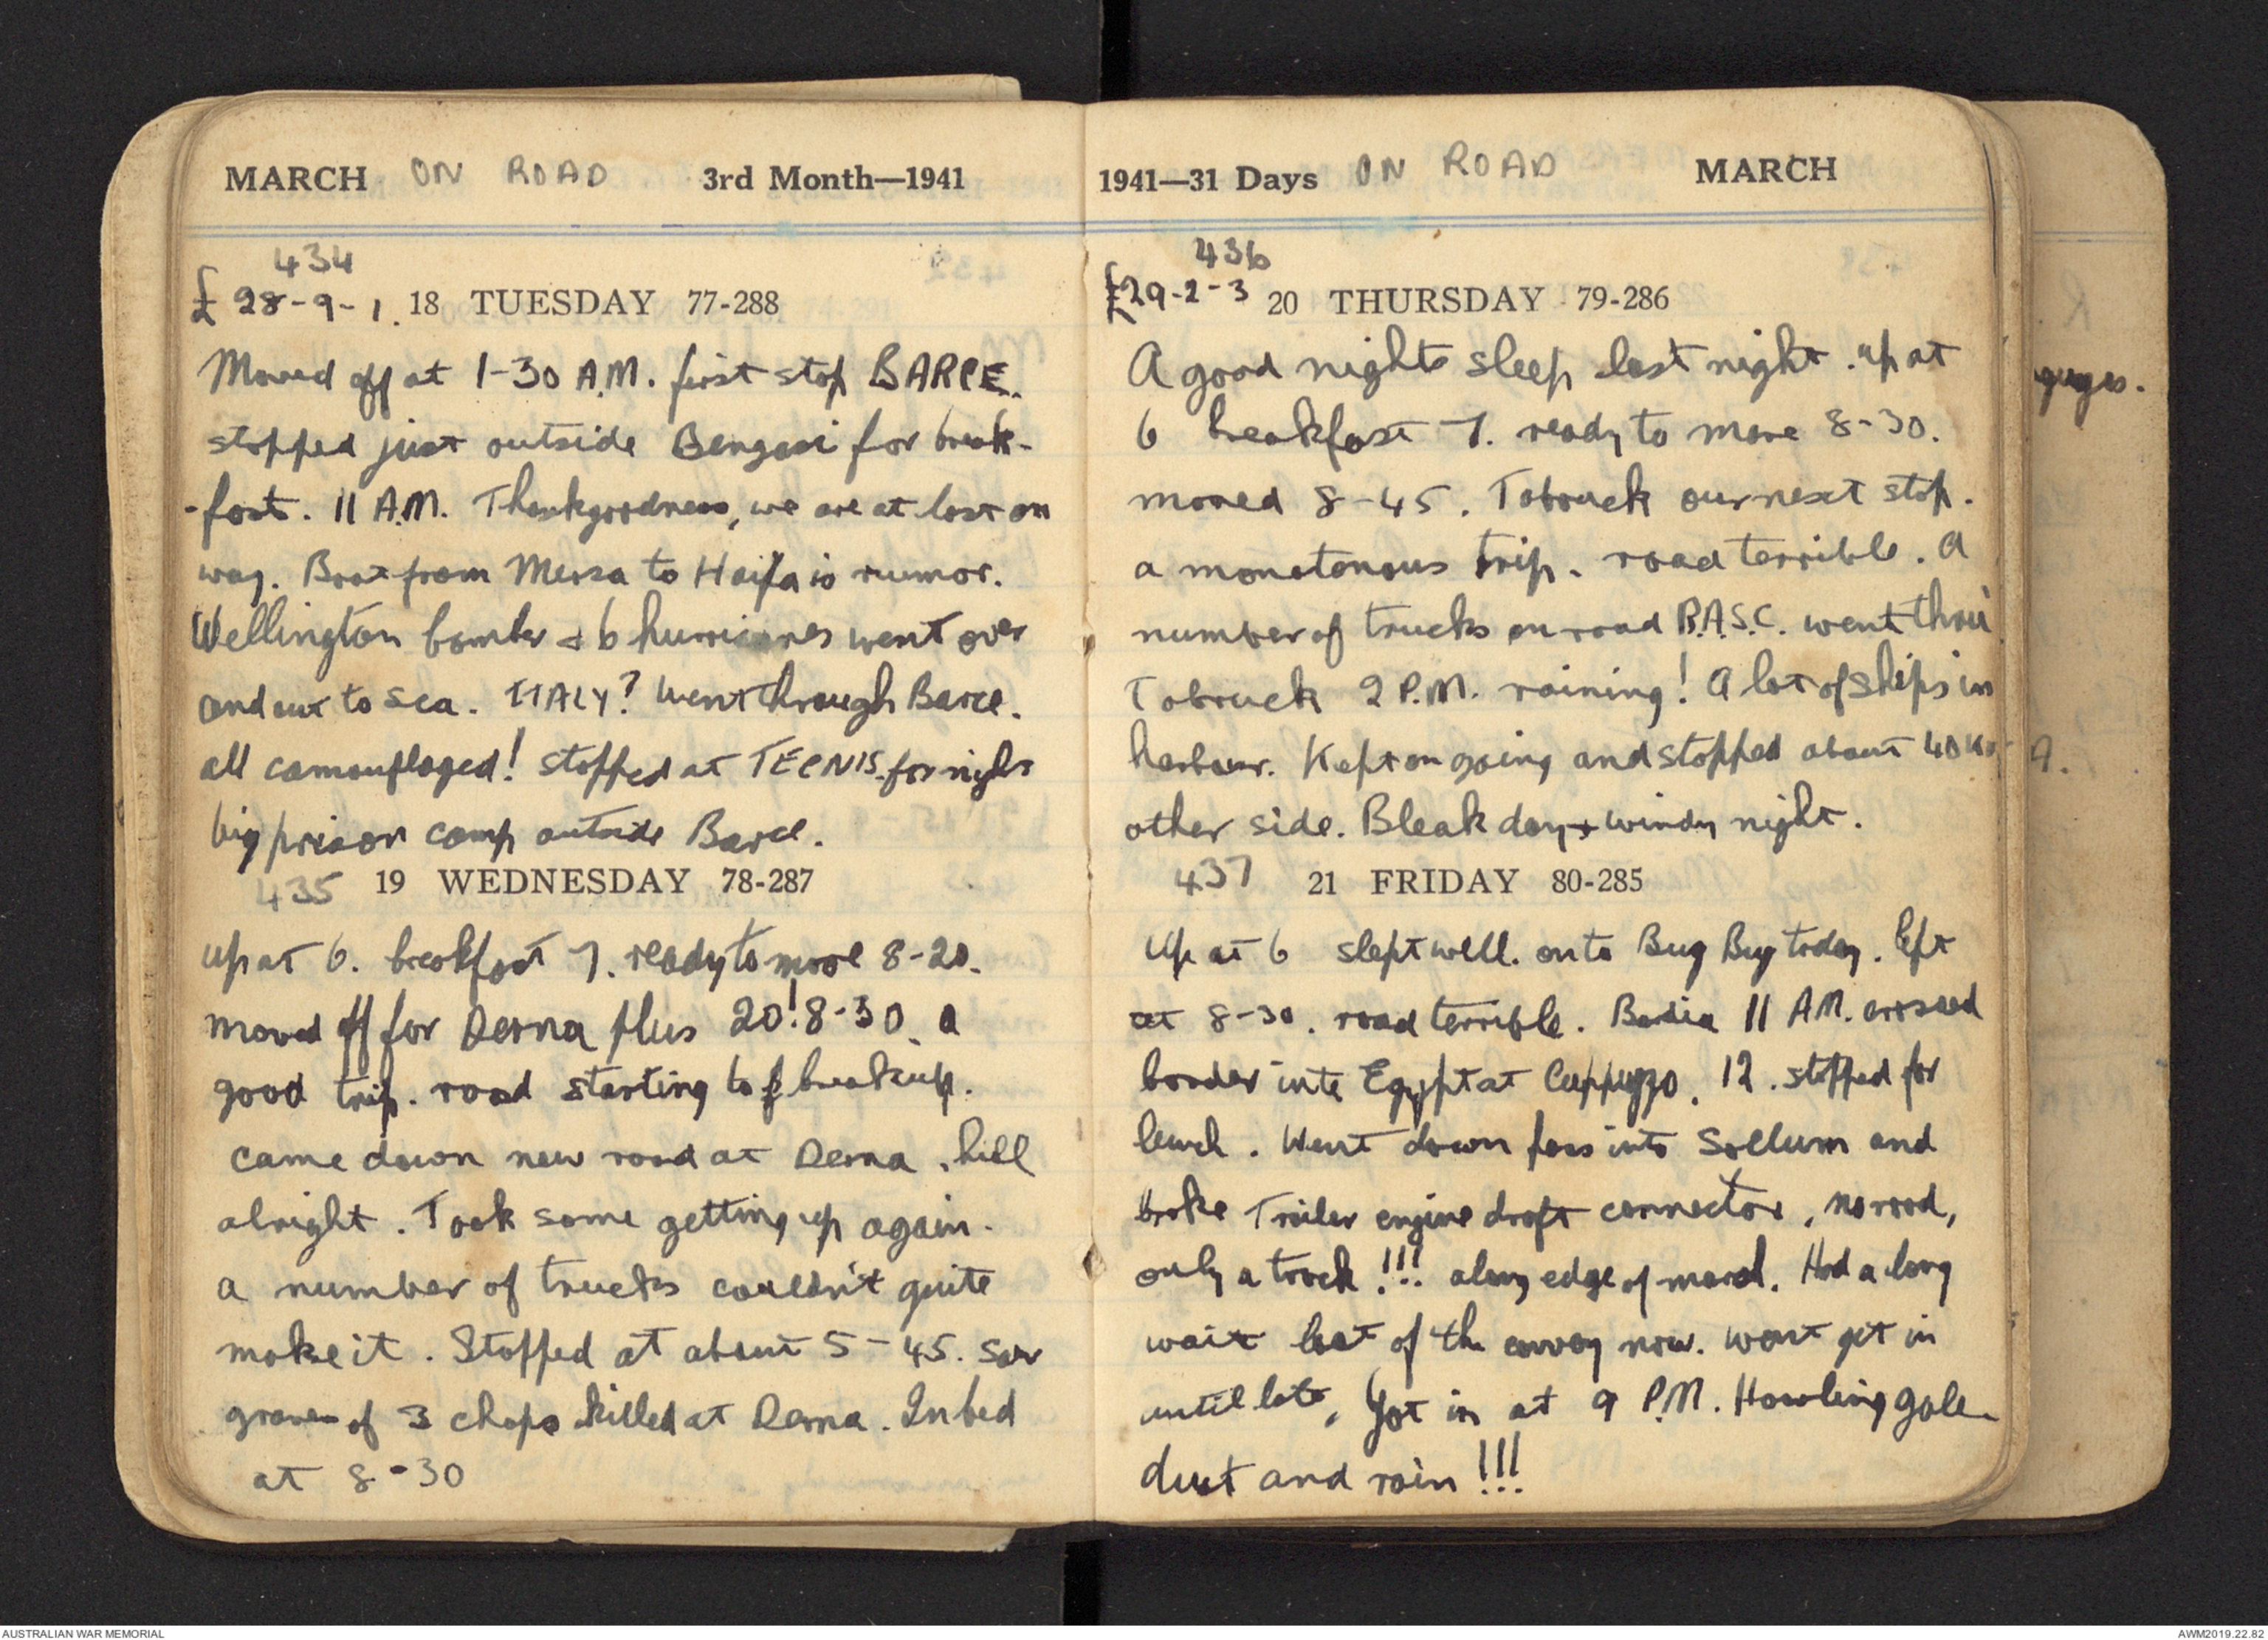 MARCH ON ROAD 3rd Month—1941
434
£ 28-9-1. 18 TUESDAY 77-288
Moved off at 1-30 A.M. first stop BARCE.
stopped just outside Bengasi for break-
-fast. 11 A.M. Thankgoodness, we are at last on
way. Boat from Mersa to Haifa is rumor.
Wellington bomber & 6 hurricanes went over
and out to sea. ITALY? Went through Barce.
all camouflaged! stopped at TECNIS for night
big prison camp outside Barce.
435 19 WEDNESDAY 78-287
up at 6. breakfast 7. ready to move 8-20.
moved off for Derna plus 20! 8-30. a
good trip. road starting to breakup.
came down new road at Derna. hill
alright. Took some getting up again.
a number of trucks couldn't quite
make it. Stopped at about 5-45. Saw
graves of 3 chaps killed at Derna. In bed
at 8-30
1941—31 Days ON ROAD MARCH
436
£29-2-3 20 THURSDAY 79-286
A good nights sleep last night. up at
6 breakfast 7. ready to move 8-30.
moved 8-45. Tobruck our next stop.
a monotonous trip. road terrible. A
number of trucks on road R.A.S.C. went thru
Tobruck 2 P.M. raining! A lot of ships in
harbour. Kept on going and stopped about 40
other side. Bleak day & windy night.
437 21 FRIDAY 80-285
Up at 6 slept well. on to Bug Bug today. left
at 8-30. road terrible. Bardia 11 AM. crossed
border into Egypt at Cappuzzo. 12. stopped for
lunch. Went down pass into Sollum and
broke Trailer engine draft connector, no road,
only a track!!! along edge of Had a long
wait last of the convoy now. wont get in
until late. Got in at 9 P.M. Howling gale
dust and rain!!!
A.
AUSTRALIAN WAR MEMORIAL
AWM2019.22.82